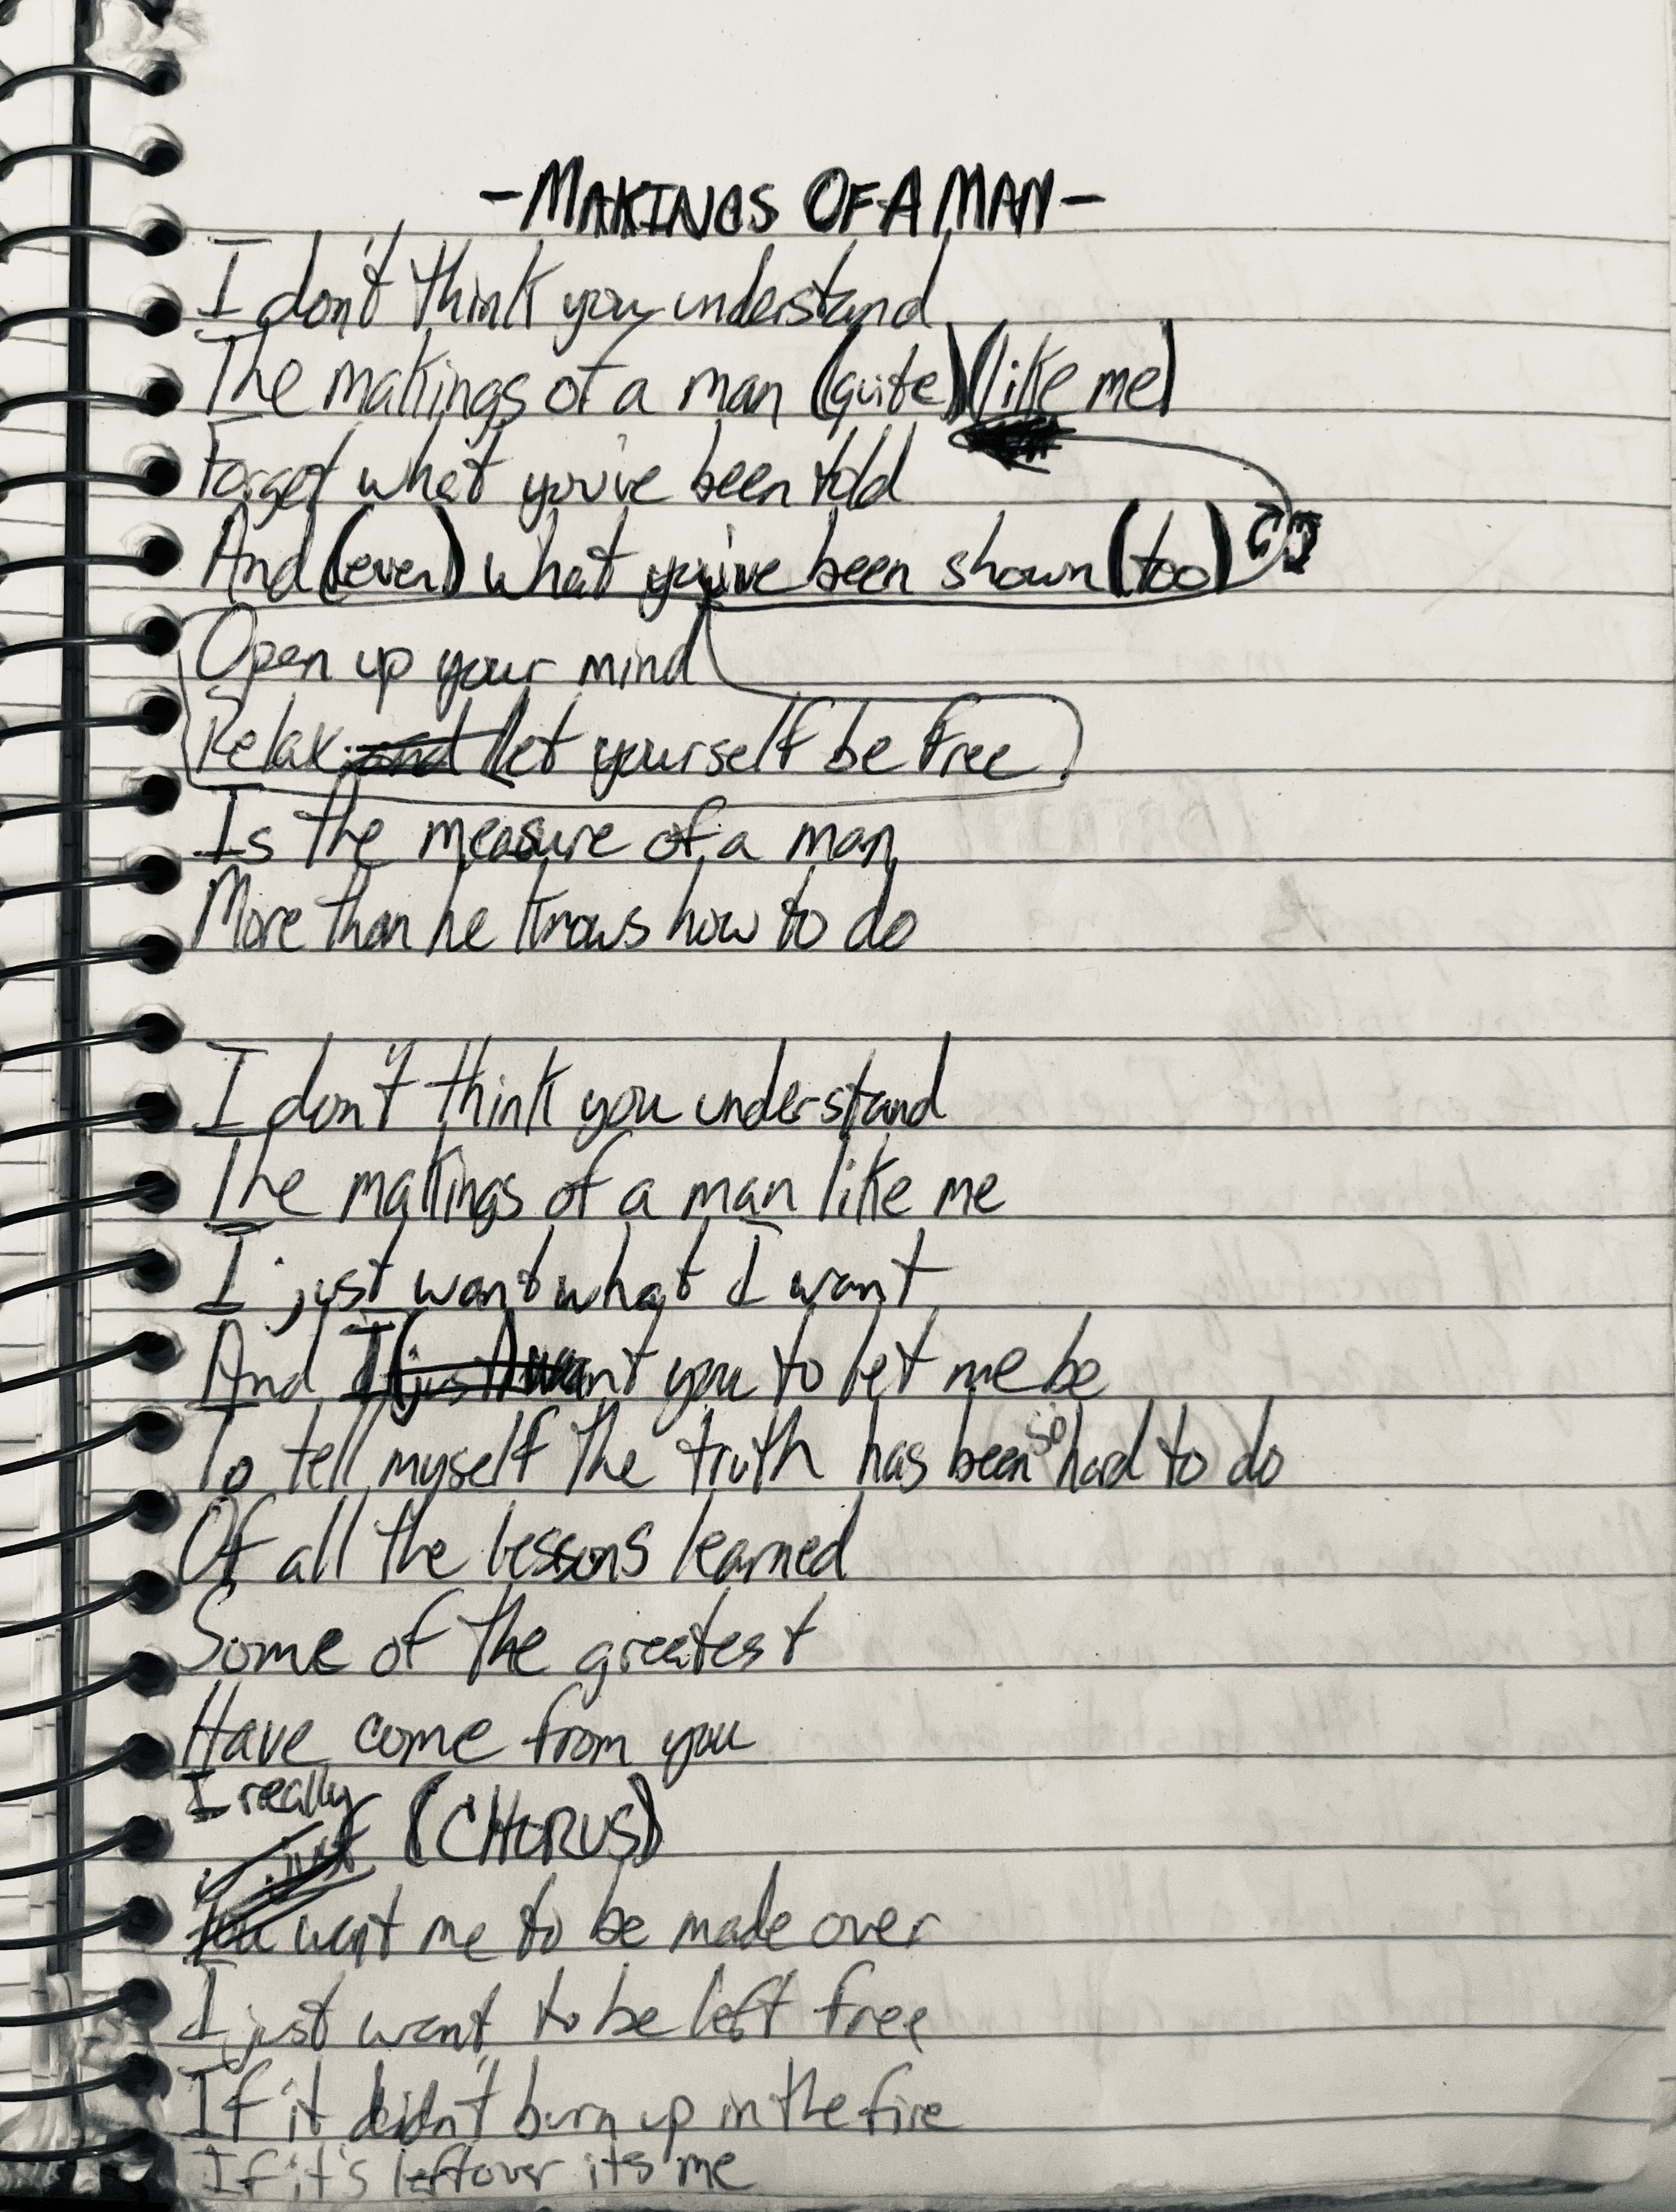 -MAKINGS OF A MAN-
I don't think you understand
The makings of a man (quite) (like me)
Forget what you've been told
And (even) what you've been shown (too)
Open up your mind
Relax and let yourself be free
Is the measure of a man
More than he knows how to do
I don't think you understand
The makings of a man like me
I just want what I want
And I (just) want you to let me be
To tell myself the truth has been so hard to do
Of all the lessons learned
Some of the greatest
Have come from you
I really
just (CHORUS)
You want me to be made over
I just want to be left free
If it didn't burn up in the fire
If it's leftover its me